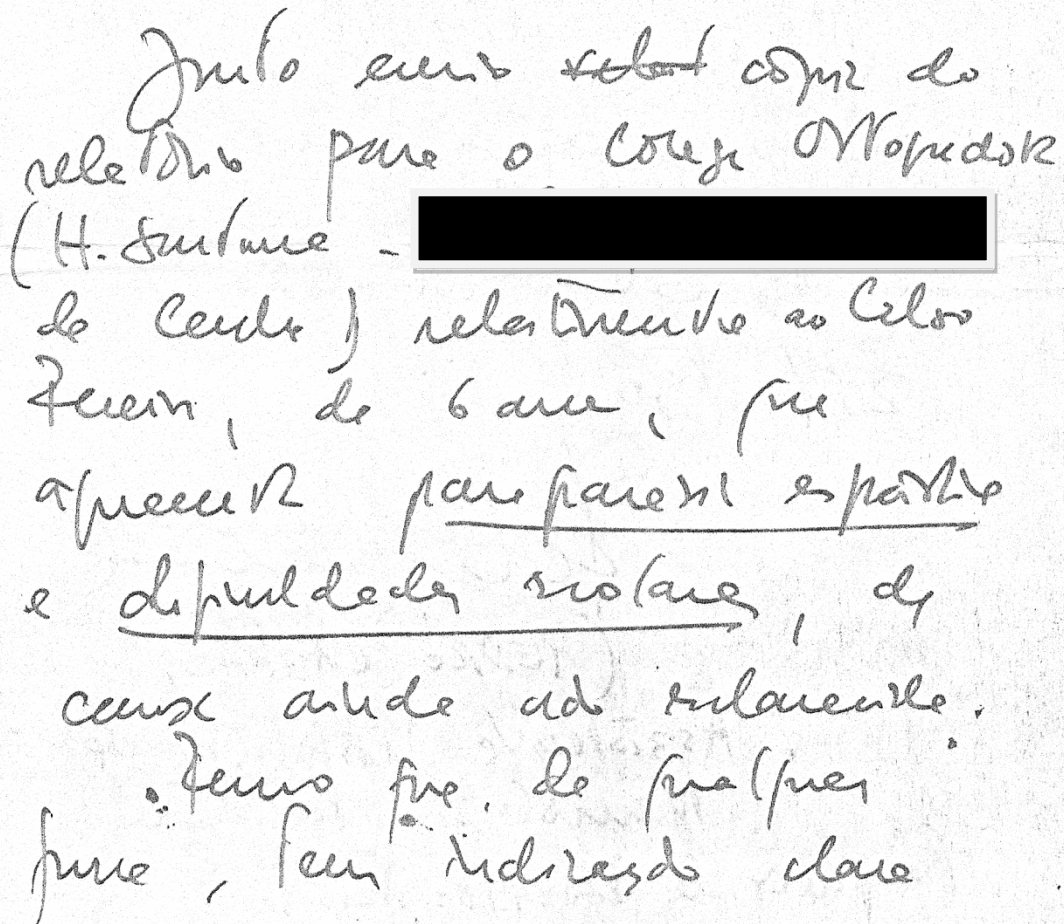 Junto envio cópia do
relatório para o colega Ortopedista
(H. Santana -
de                ) relativamente ao Celso
                , de 6 anos, que
apresenta paraparesia espástica
e dificuldades escolares, de
causa ainda não esclarecida.
que, de qualquer
forma, tem indicação clara